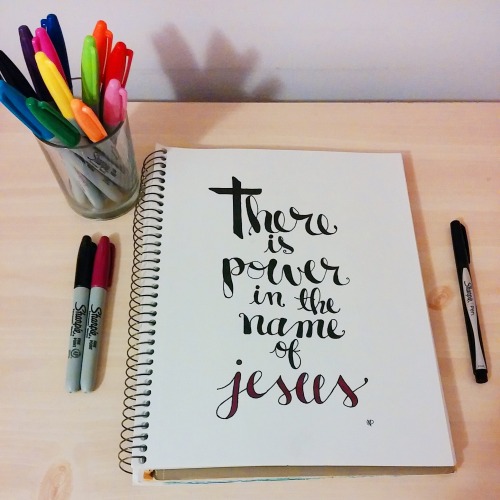 There
is
power
in the
name
of
jesus
Sharpie
Sharpie
Sharpie